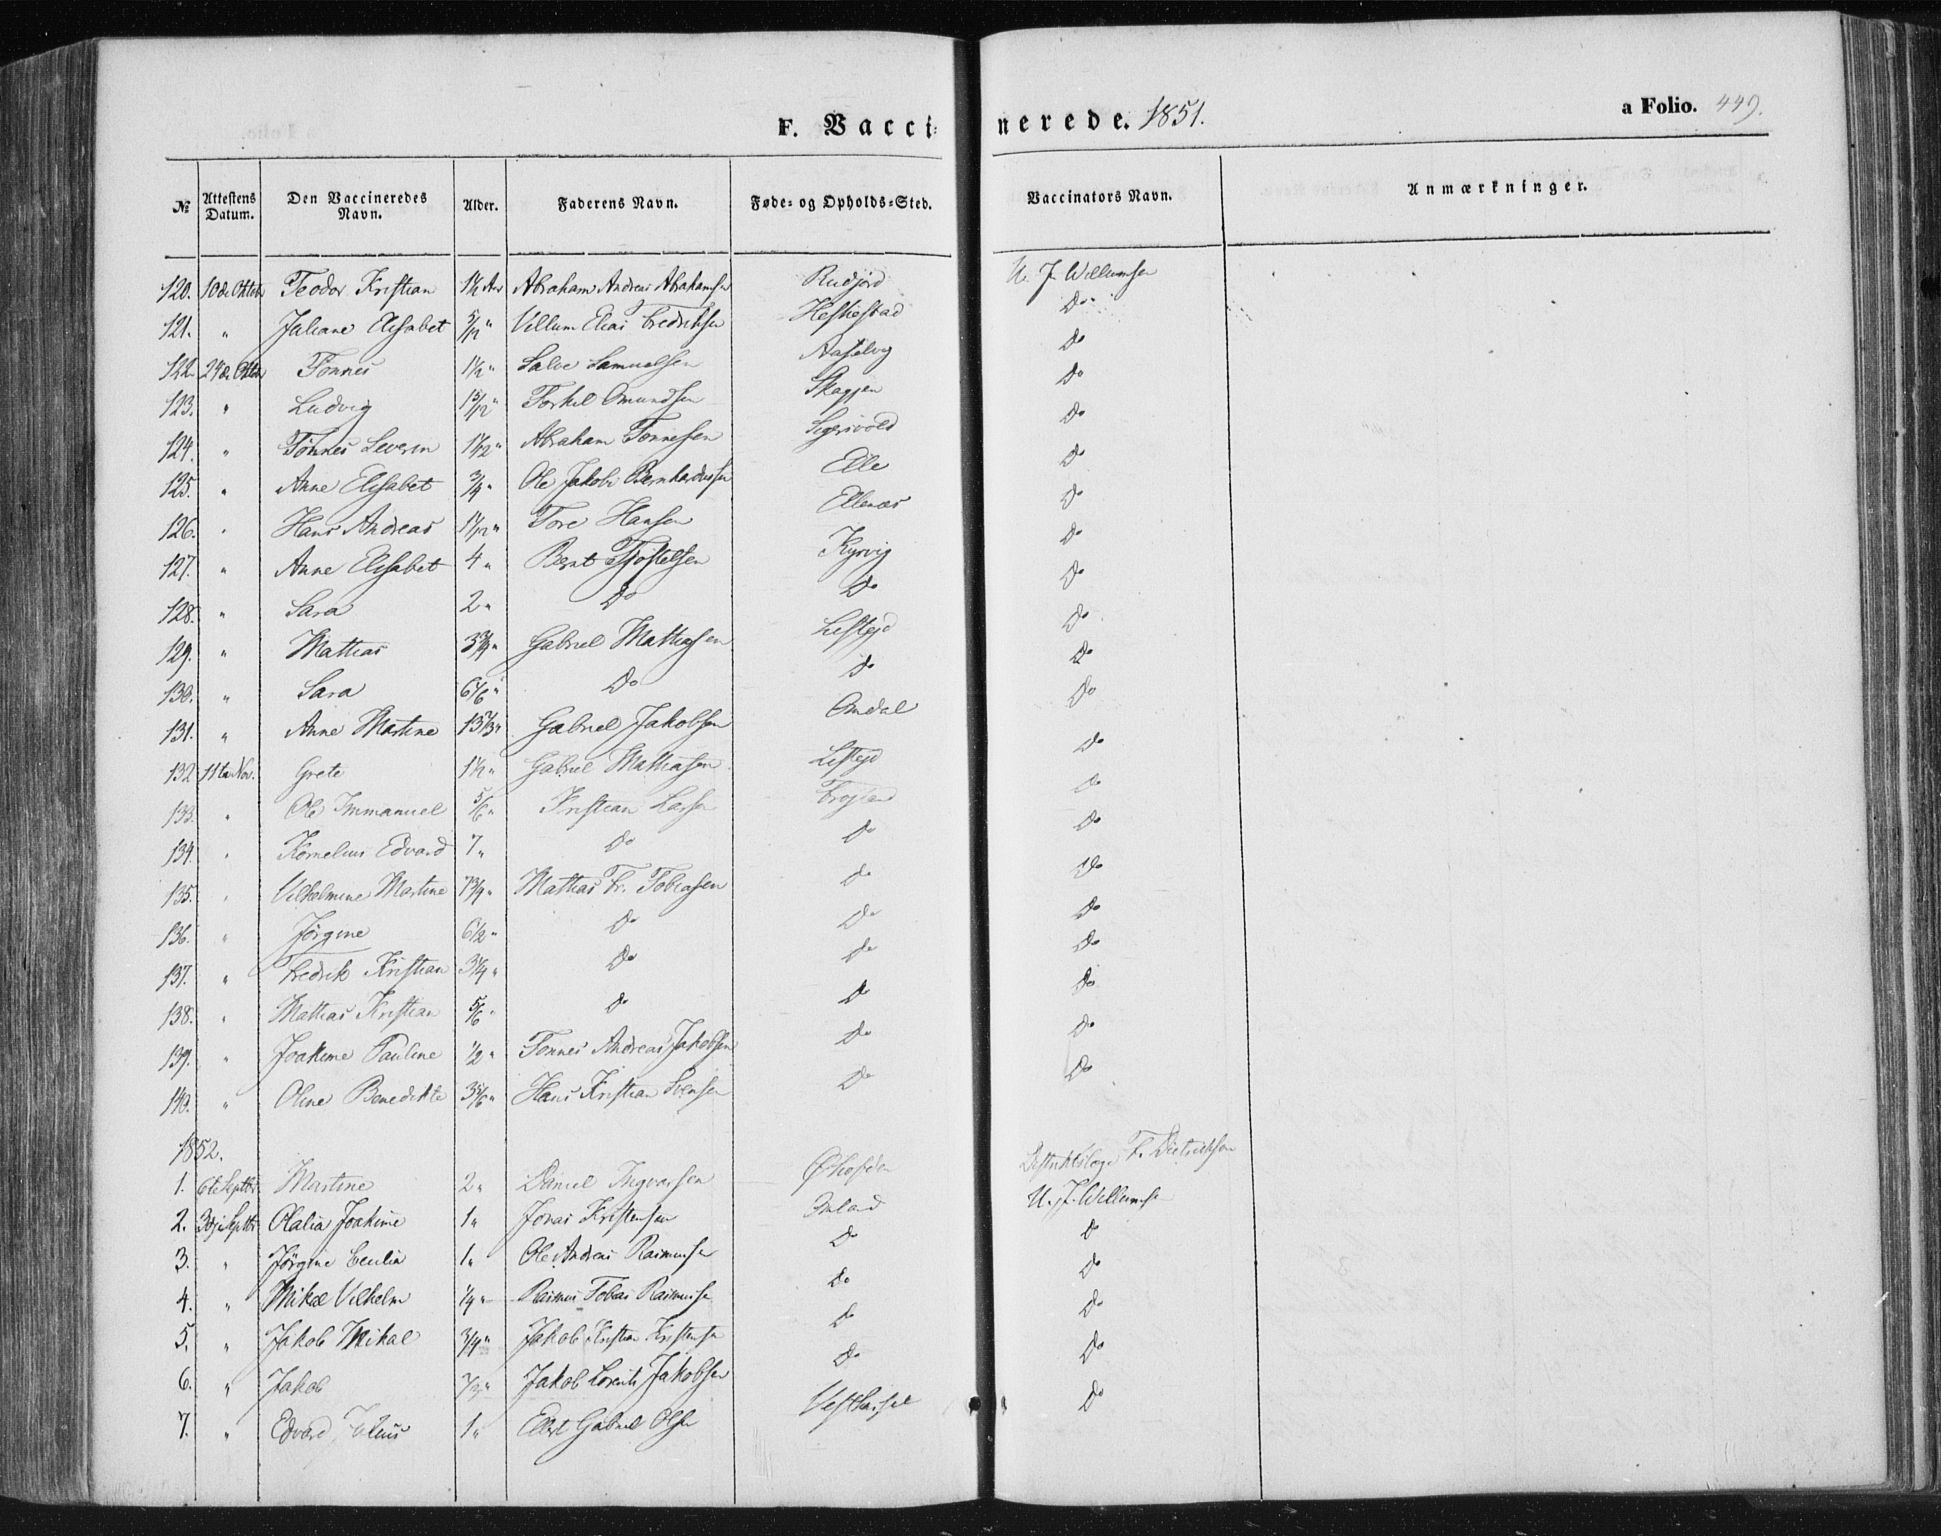 F. Vaccinerede. 1851.
a Folio. 449.
№ Attestens Datum. Den Vaccineredes Navn. Alder. Faderens Navn. Føde- og Opholds-Sted. Vaccinators Navn. Anmærkninger.
120. 10de Oktob Teodor Kristian 1½ Aar Abraham Andreas Abrahamsen Rudjord U. J. Willumsen
121. " Juliane Elisabet 5/12 " Villum Elias Fredriksen Heskestad Do
122. 24de Oktob Tønnes 1½ " Salve Samuelsen Do
123. " Ludvig " Torkel Omundsen Skagjen Do
124. " Tønnes Severin " Abraham Tønnesen Sigersvold Do
125. " Anne Elisabet ¾ " Ole Jakob Bernhardussen Elle Do
126. " Hans Andreas " Tore Hansen Ellenæs Do
127. " Anne Elisabet 4 " Bernt Kyrvig Do
128. " Sara 2 " Do Do Do
129. " Mattias 3¾ " Gabriel Mathiasen Do
130. " Sara 6 " Do Do Do
131. " Anne Martine 13 " Gabriel Jakobsen Omdal Do
132. 11te Nov. Grete 1½ " Gabriel Mathiasen Do
133. " Ole Immanuel 5/6 " Kristian Larsen Frøjland Do
134. " Kornelius Edvard 7 " Do Do Do
135. " Vilhelmine Martine 7¾ " Mathias Fr. Tobiasen Do Do
136. " Jørgine 6½ " Do Do Do
137. " Fredrik Kristian 3¼ " Do Do Do
138. " Mathias Kristian 5/6 " Do Do Do
139. " Joakime Pauline ½ " Tønnes Andreas Jakobsen Do Do
140. " Oline Benedikte 3 5/6 " Hans Kristian Svensen Do Do
1852.
1. 6te Septbr Martine 2 " Daniel Ingvarsen Distriktslæge F. Dietrichson
2. 30te Septbr Olalia Joakime 1 " Jonas Kristensen U. J. Willumsen
3. " Jørgine 1 " Ole Andreas Rasmussen Do Do
4. " Mikal Vilhelm ¼ " Rasmus Tobias Rasmussen Do Do
5. " Jakob Mikal ¾ " Jakob Kristian Kristensen Do Do
6. " Jakob " Jakob Lorents Jakobsen Do Do
7. " Edvard Julius 1 " Elert Gabriel Olsen Vesthassel Do